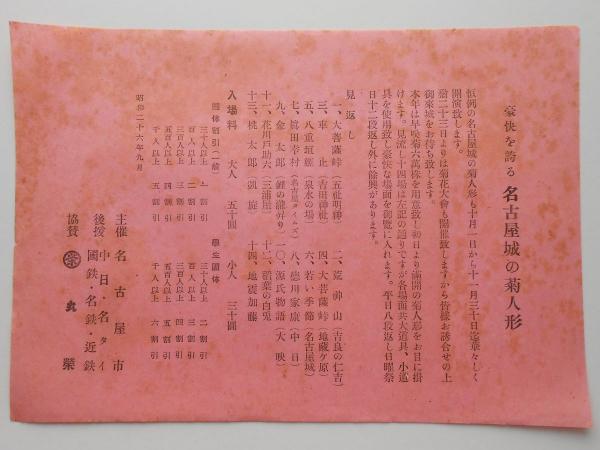 豪快を誇る 名古屋城の菊人形
恒例の名古屋城の菊人形も十月一日から十一月三十日迄華々しく
開演致します。
猶二十三日よりは菊花大會も開催致しますから皆様お誘合せの上
御來城をお待ち致します。
本年は早咲菊六萬株を用意致し初日より滿開の菊人形をお目に掛
けます。見流し十四場は左記の通りですが各場面共大道具、小道
具を使用致し豪快な場面を御覽に入れます。平日八段返し日曜祭
日十二段返し外に餘興があります。
見返し
一、大菩薩峠(五社明神)
二、荒神山(吉良の仁吉)
三、車止(吉田神社)
四、大菩薩峠(地藏ケ原)
五、八重垣姫(泉水の場)
六、若い季節(名古屋城)
七、眞田幸村(名古屋タイムズ)
八、徳川家康(中日)
九、金太郎(鯉の瀧昇り)
一〇、源氏物語(大映)
十一、花川戸助六(三浦屋)
十二、稻葉の白兎
十三、桃太郎凱旋
十四、地震加藤
入場料 大人 五十圓 小人 三十圓
團体割引(一般)
三十人以上 一割引
百人以上 二割引
三百人以上 三割引
五百人以上 四割引
千人以上 五割引
學生團体
三十人以上 二割引
百人以上 三割引
三百人以上 四割引
五百人以上 五割引
千人以上 六割引
昭和二十六年九月
主催 名古屋市
後援 中日・名タイ
國鉄・名鉄・近鉄
協賛 榮 丸榮